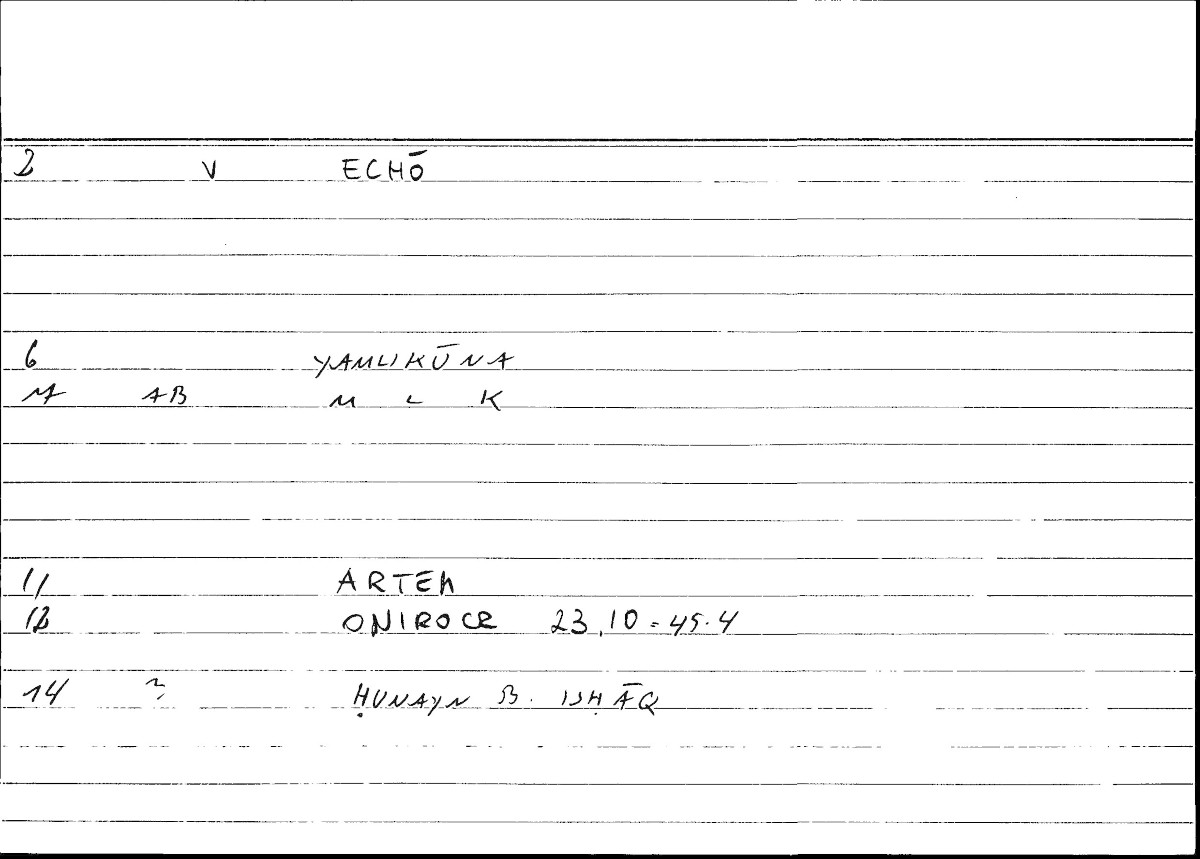 2 V ECHŌ
6 YAMLIKŪNA
M AB M L K
11 ARTEM
12 ONIROCR 23,10 = 45.4
14 ? ḤUNAYN B. ISḤĀQ